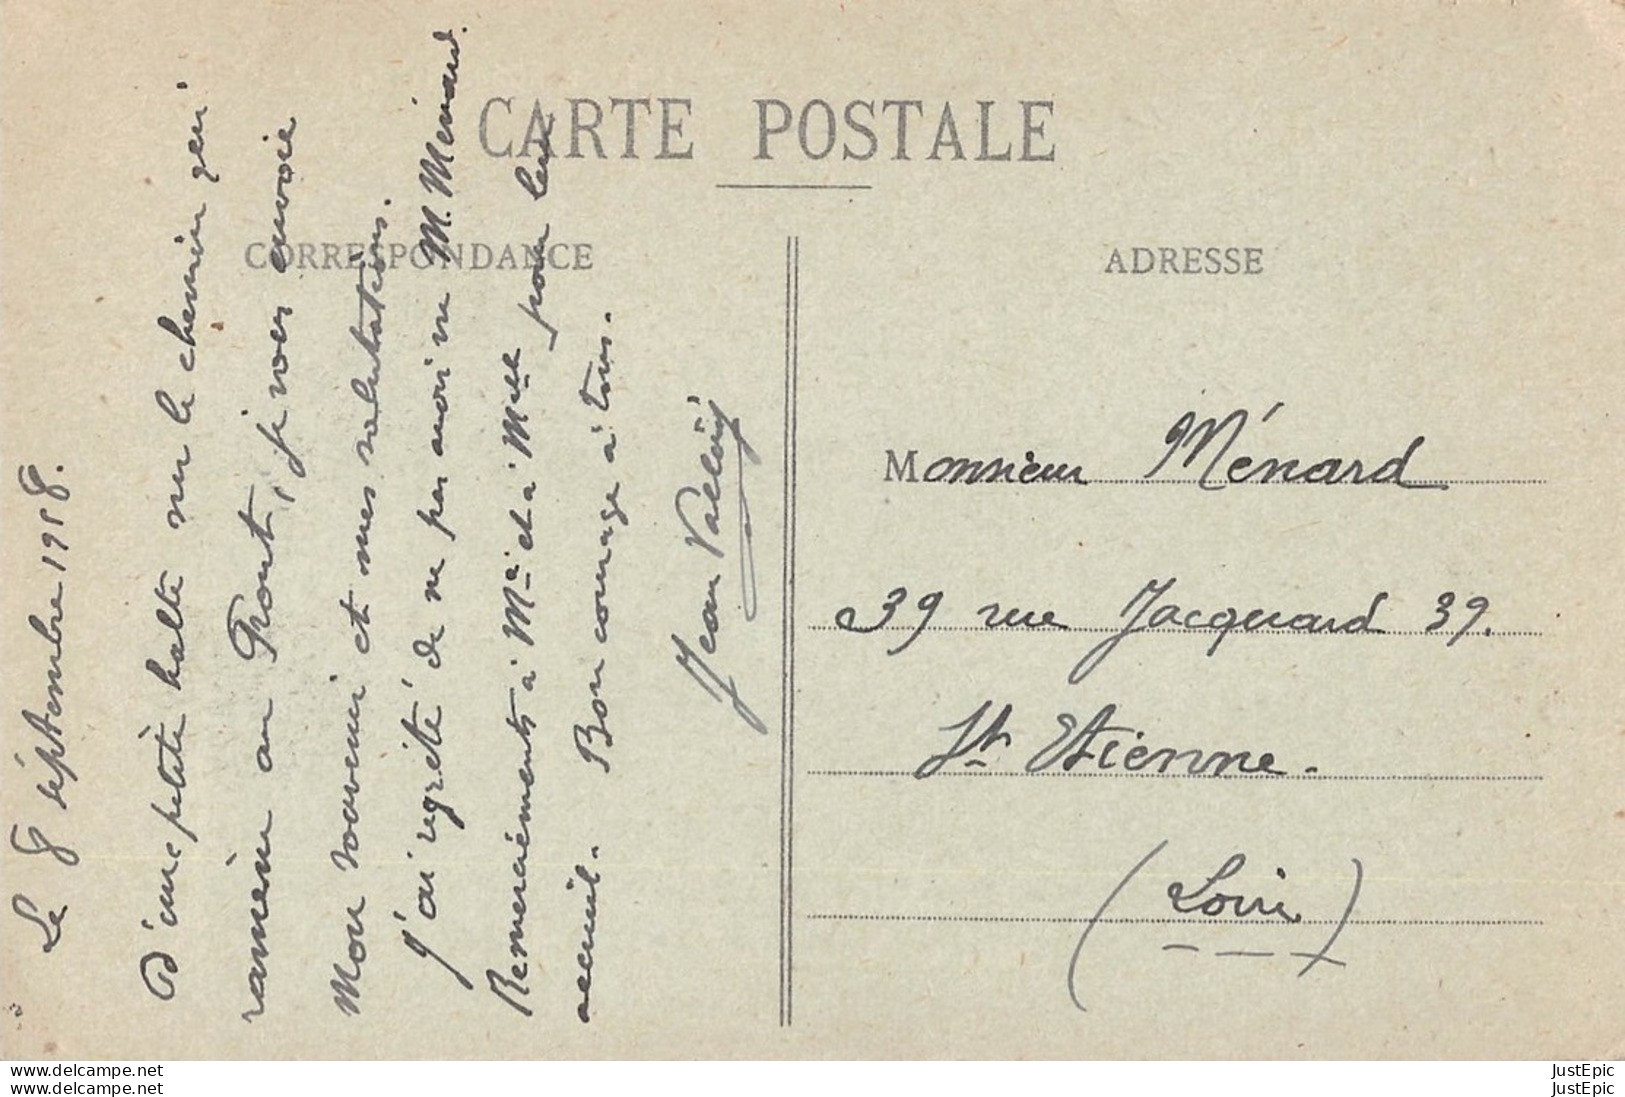 CARTE POSTALE
CORRESPONDANCE
Le 8 séptembre 1918.
D'une petite halte sur le chemin qui
ramène au Front, je vous envoie
Mon souvenir et mes salutations.
J'ai regrété de ne pas avoir vu M. Ménard.
Remerciéments à Me et à Mlle pour leur
accueil. Bon courage à tous.
Jean
ADRESSE
Monsieur Ménard
39 rue Jacquard 39.
St Etienne.
(Loire)
www.delcampe.net
www.delcampe.net
JustEpic
JustEpic